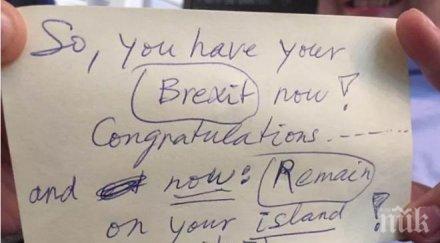 So, you have your
Brexit now!
Congratulations......
and now: Remain
on your island!
пик